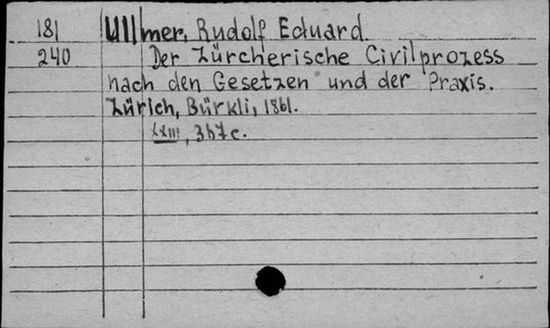 181 Ullmer, Rudolf Eduard.
240 Der Zürcherische Civilprozess
nach den Gesetzen und der Praxis.
Zürich, Bürkli, 1861.
XXIII, 367c.